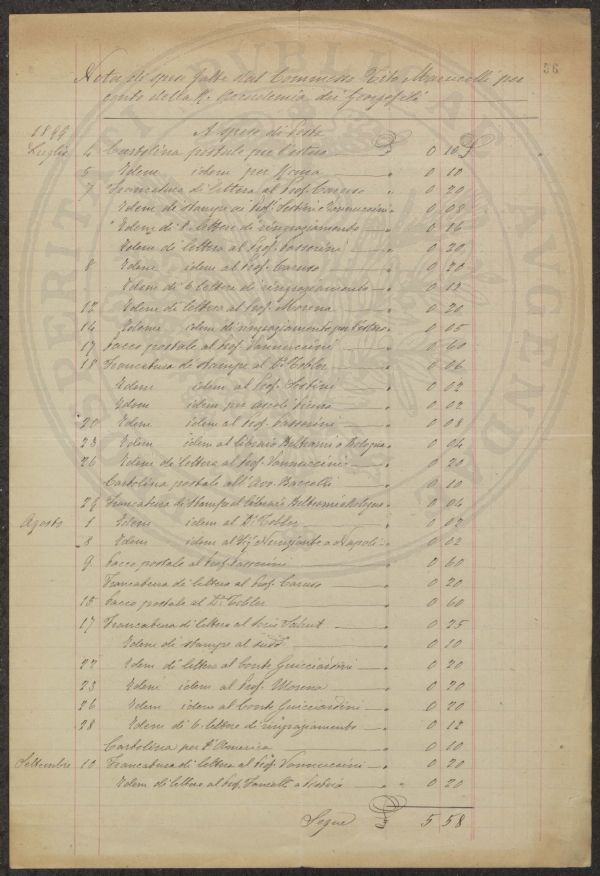 36
Nota di spese fatte dal Commesso Vito Marucelli per
conto della R. Accademia dei Georgofili
PROSPERITATI PUBLICAE AUGENDAE
1899 A spese di Posta
Luglio 4 Cartolina postale per l'estero £ 0 10
5 Idem idem per Roma " 0 10
7 Francatura di lettera al Prof. Caruso " 0 20
Idem di stampe ai Prof. Sestini e Vannuccini " 0 08
Idem di 8 lettere di ringraziamento " 0 16
Idem di lettera al Prof. Passerini " 0 20
8 Idem idem al Prof. Caruso " 0 20
Idem di 6 lettere di ringraziamento " 0 12
12 Idem di lettera al Prof. Morena " 0 20
14 Idem idem di ringraziamento per l'estero " 0 05
17 Pacco postale al Prof. Vannuccini " 0 60
18 Francatura di stampe al Dr. Tobler " 0 06
Idem idem al Prof. Sestini " 0 02
Idem idem per Ascoli Piceno " 0 02
20 Idem idem al Prof. Passerini " 0 08
23 Idem idem al libraio Beltrami a Bologna " 0 04
26 Idem di lettera al Prof. Vannuccini " 0 20
Cartolina postale all'Avv. Baccelli " 0 10
29 Francatura di stampe al libraio Beltrami a Bologna " 0 04
Agosto 1 Idem idem al Dr. Tobler " 0 02
8 Idem idem al Sig. a Napoli " 0 02
9 Pacco postale al Prof. Passerini " 0 60
Francatura di lettera al Prof. Caruso " 0 20
15 Pacco postale al Dr. Tobler " 0 60
17 Francatura di lettera al Socio " 0 25
Idem di stampe al sudd. " 0 10
22 Idem di lettera al Conte Guicciardini " 0 20
23 Idem idem al Prof. Morena " 0 20
26 Idem idem al Conte Guicciardini " 0 20
28 Idem di 6 lettere di ringraziamento " 0 12
Cartolina per l'America " 0 10
Settembre 10 Francatura di lettera al Prof. Vannuccini " 0 20
Idem di lettera al Prof. a " 0 20
Segue £ 5 58